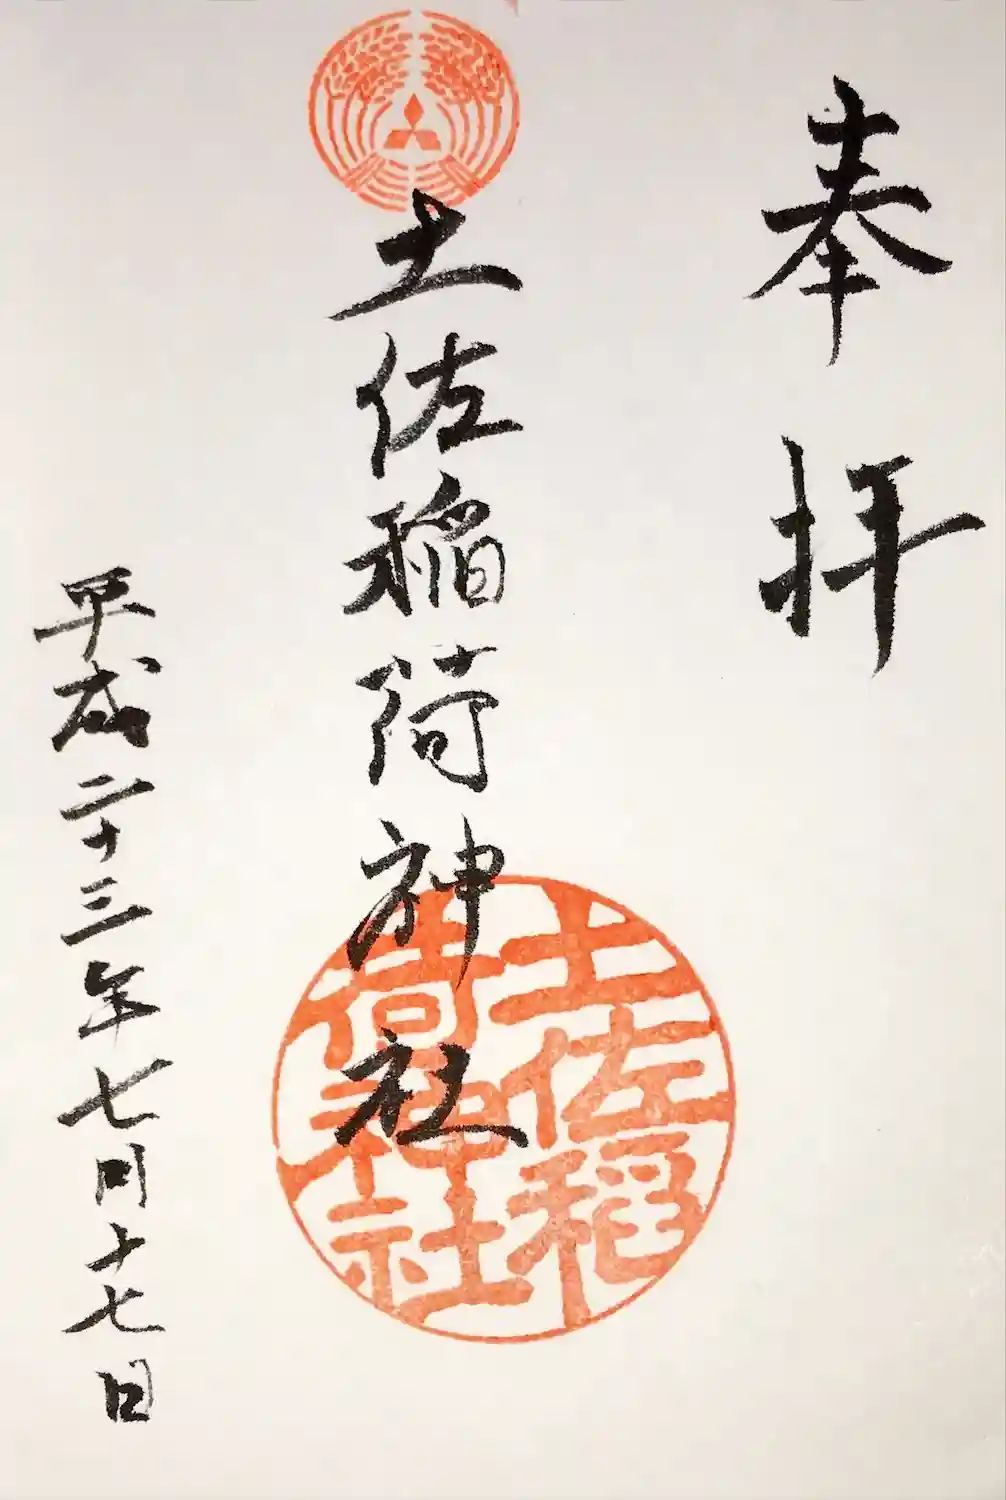 奉拝
土佐稲荷神社
土佐稲荷神社
平成二十三年七月十七日